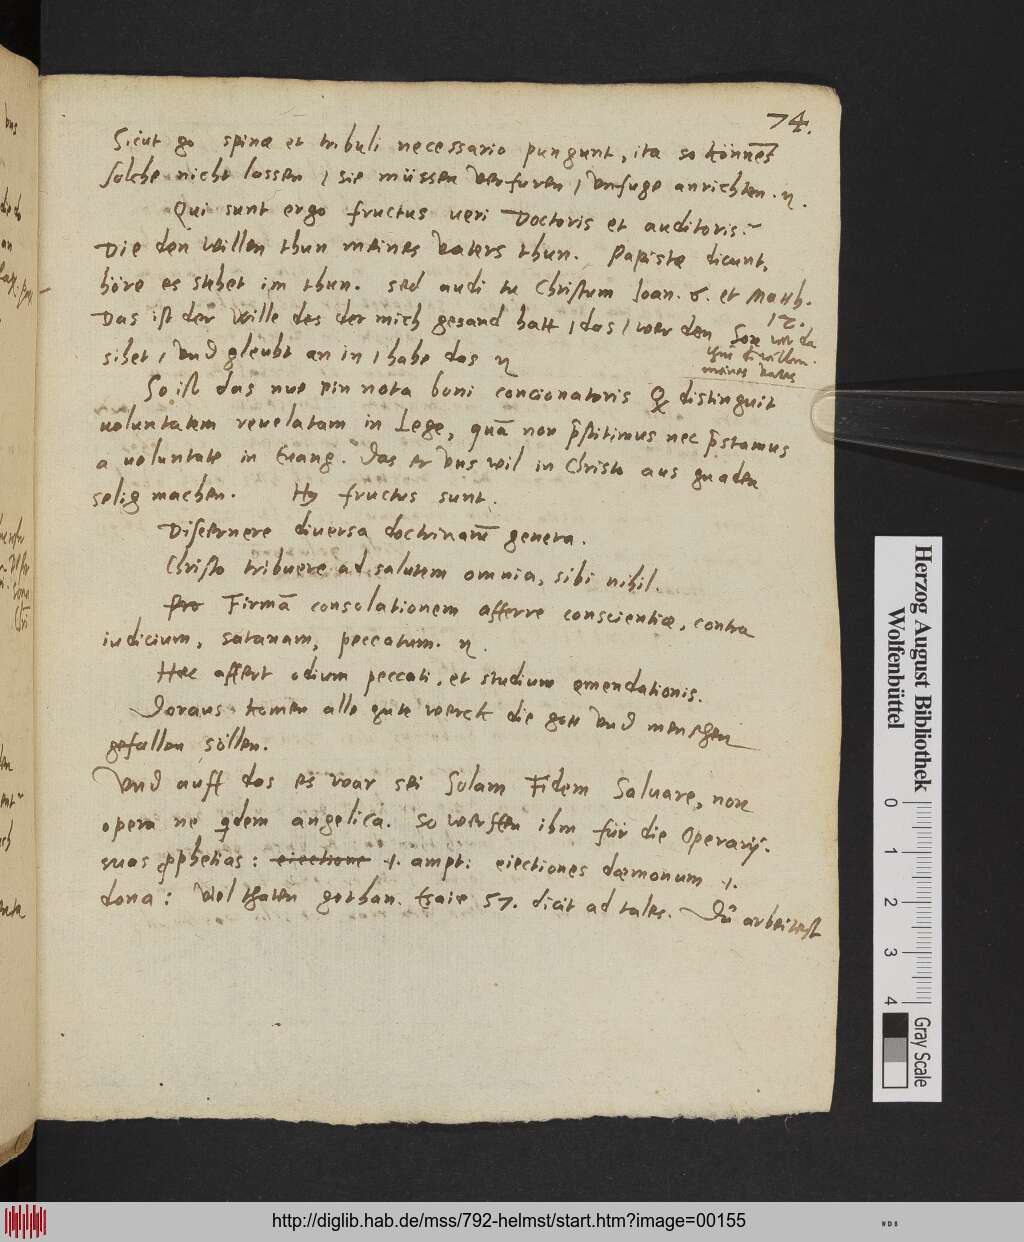 74.
Sicut go spinæ et tribuli necessario pungunt, ita so können
solche nicht lassen / sie müssen verfuren / vnfuge anrichten.
Qui sunt ergo fructus ueri Doctoris et auditoris?
Die den willen thun meines vaters thun. Papistæ dicunt,
höre es stehet im thun. sed audi tu Christum Joan. 6. et Matth.
12.
Das ist der wille des der mich gesand hatt / das / wer den Son
sihet / vnd gleubt an in / habe das
wer da
meines vaters
So ist das nue ein nota boni concionatoris distinguit
uoluntatem reuelatam in Lege, quā non p̄stitimus nec p̄stamus
a uoluntate in Euang. Das er vns wil in Christo aus gnaden
selig machen. Hy fructus sunt.
Discernere diuersa doctrinarū genera.
Christo tribuere ad salutem omnia, sibi nihil.
Firmā consolationem afferre conscientiæ, contra
iudicium, satanam, peccatum.
Hec affert odium peccati, et studium emendationis.
Doraus komen alle gute werck die gott vnd menschen
gefallen söllen.
Vnd auff das es war sei Solam Fidem Saluare, non
opera ne qdem angelica. So werffen ihm für die Operarij.
suas pphetias: eiectione .i. ampt: eiectiones dæmonum .i.
dona: wol thaten gethan. Esaie 57. dicit ad tales. Dū arbeitest
Herzog August Bibliothek
Wolfenbüttel
0 1 2 3 4
Gray Scale
http://diglib.hab.de/mss/792-helmst/start.htm?image=00155